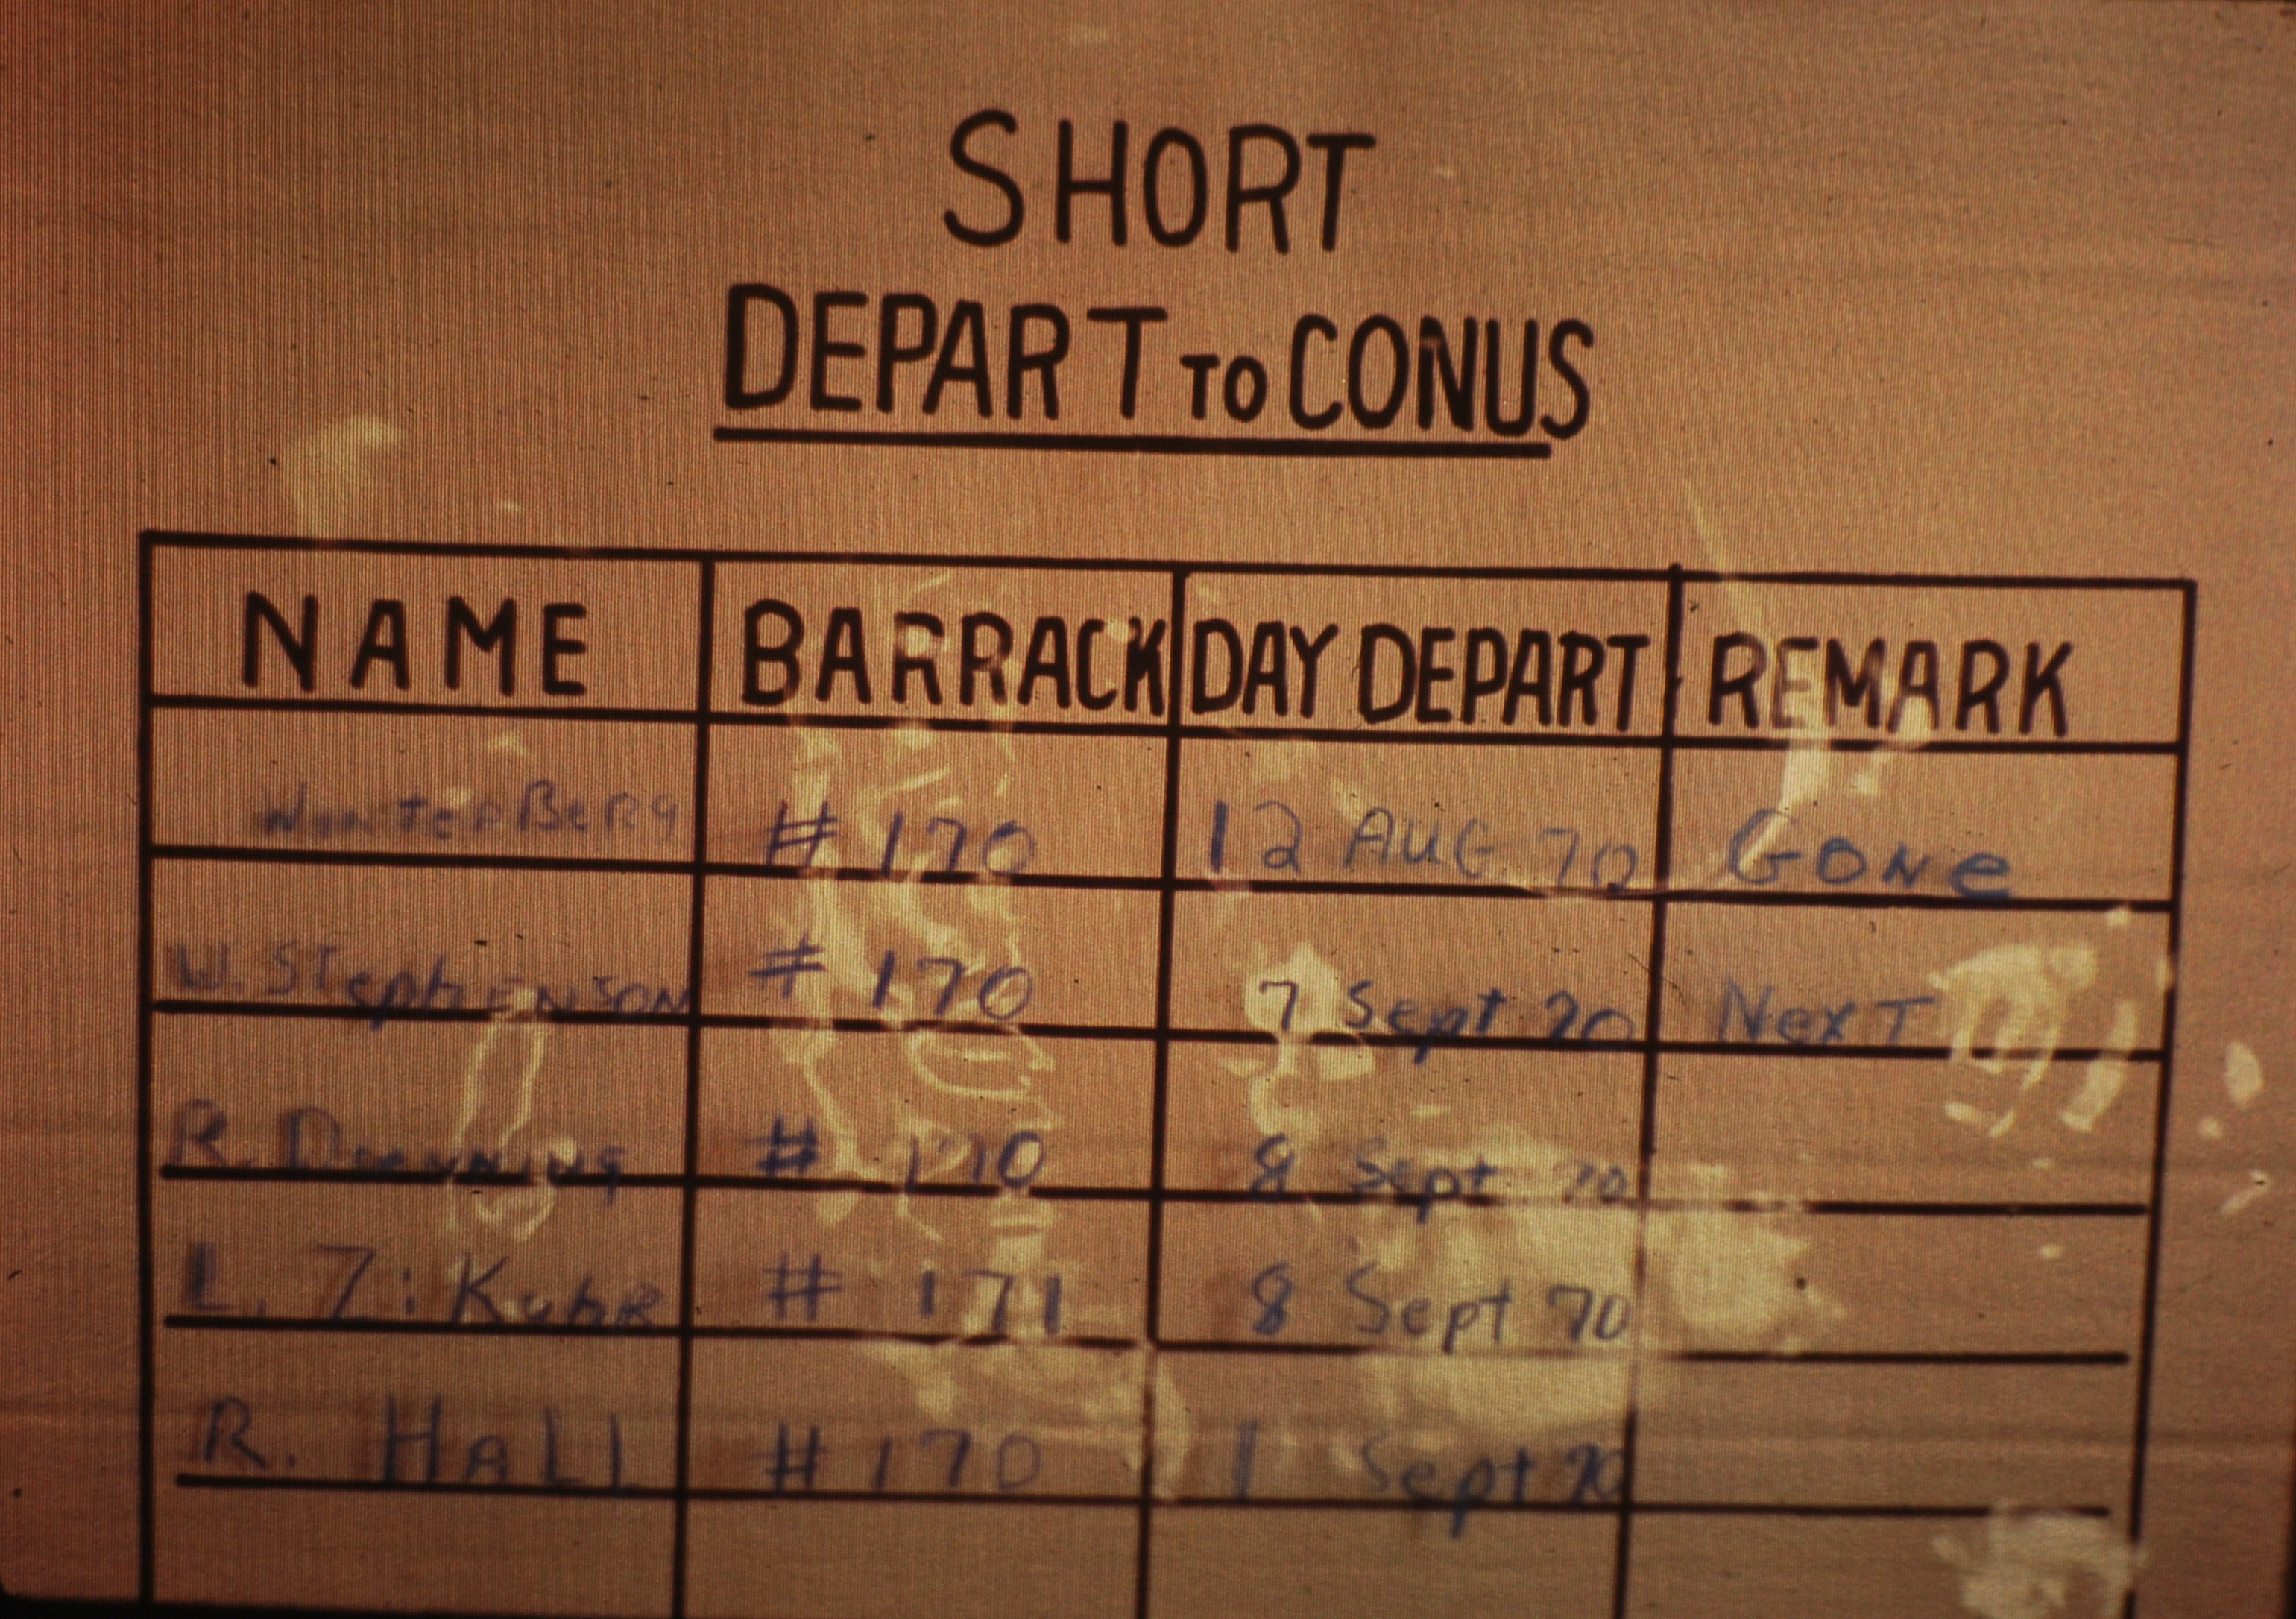 SHORT
DEPART TO CONUS
NAME BARRACK DAY DEPART REMARK
WinTERBeRg # 170 12 AUG 70 GONe
W. STephENSON # 170 7 Sept 70 NexT
R. # 170 8 Sept 70
L. Z: KuhR # 171 8 Sept 70
R. HALL # 170 1 Sept 70